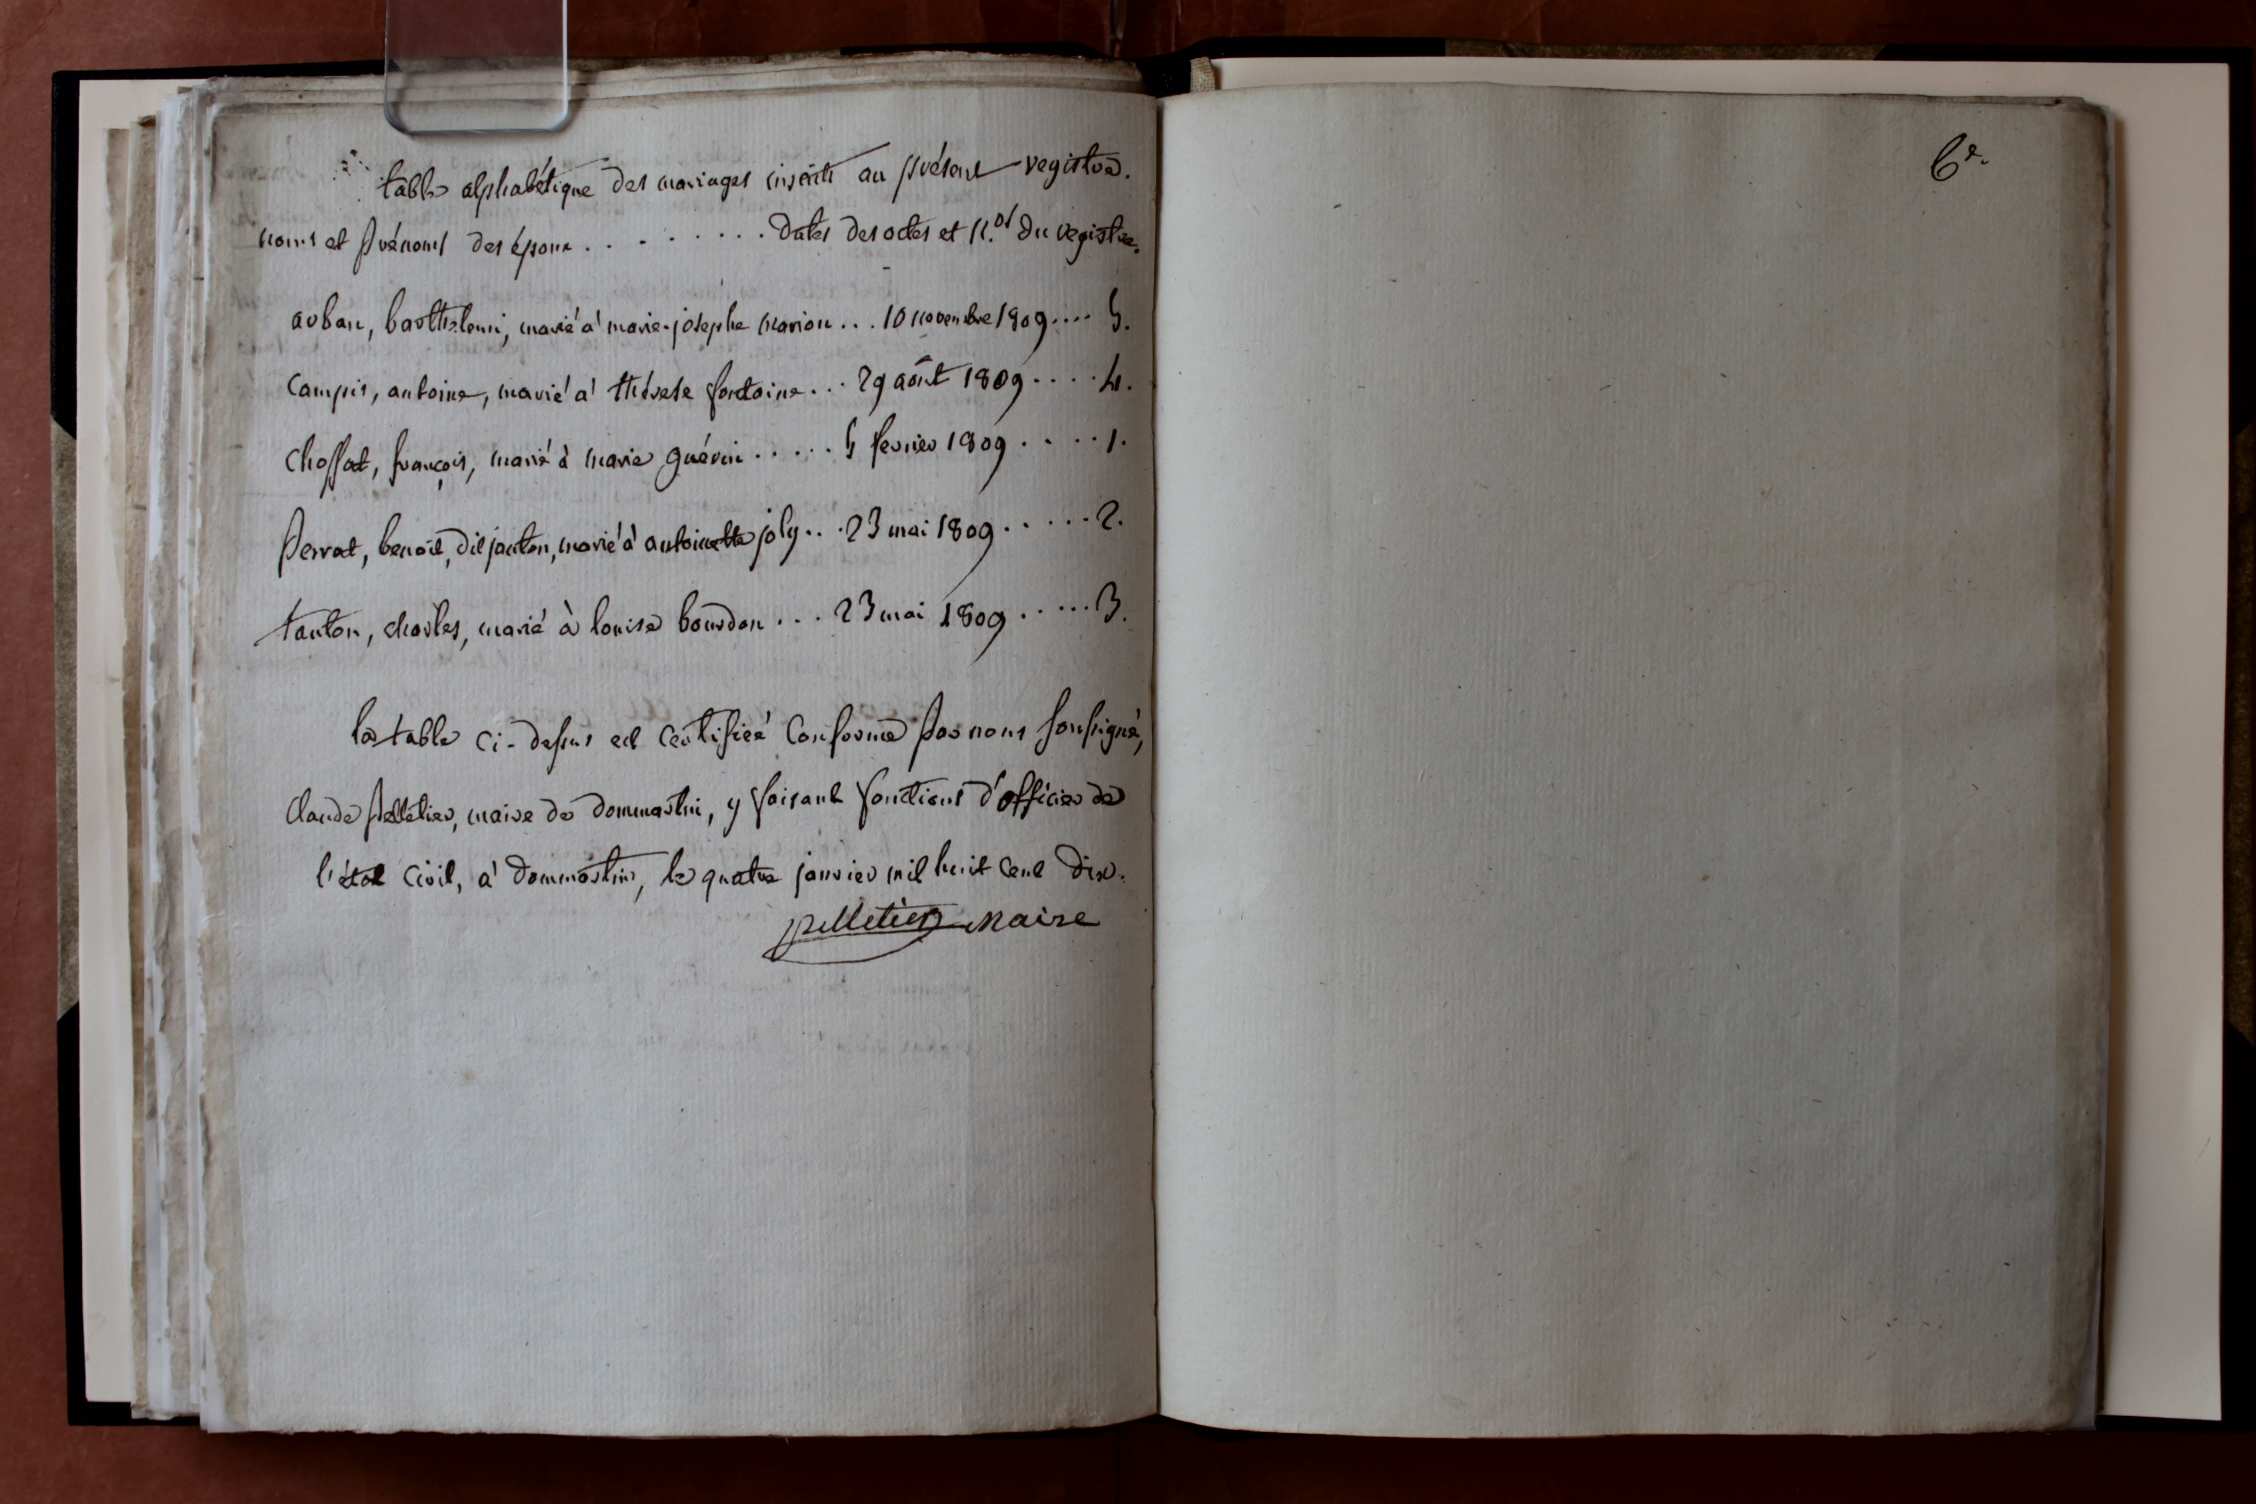 table alphabétique des mariages inscrits au présent registre.
noms et prénoms des époux . . . . . . . . . dates des actes et n.os du registre.
arban, barthelemi, marié à marie-josephe marion . . . 10 novembre 1809 . . . . 5.
Campis, antoine, marié à thérese fontaine . . . 29 août 1809 . . . . . 4.
Choffat, françois, marié à marie guérin . . . . . 5 fevrier 1809 . . . . . 1.
perrat, benoit, dit janton, marié à antoinette joly . . . 23 mai 1809 . . . . . . 2.
tanton, charles, marié à louise bourdon . . . . 23 mai 1809 . . . . . 3.
la table ci-dessus est certifiée Conforme par nous soussigné,
Claude pelletier, maire de dommartin, y faisant fonctions d'officier de
l'état civil, à dommartin, le quatre janvier mil huit cent dix.
pelletier maire
6e.